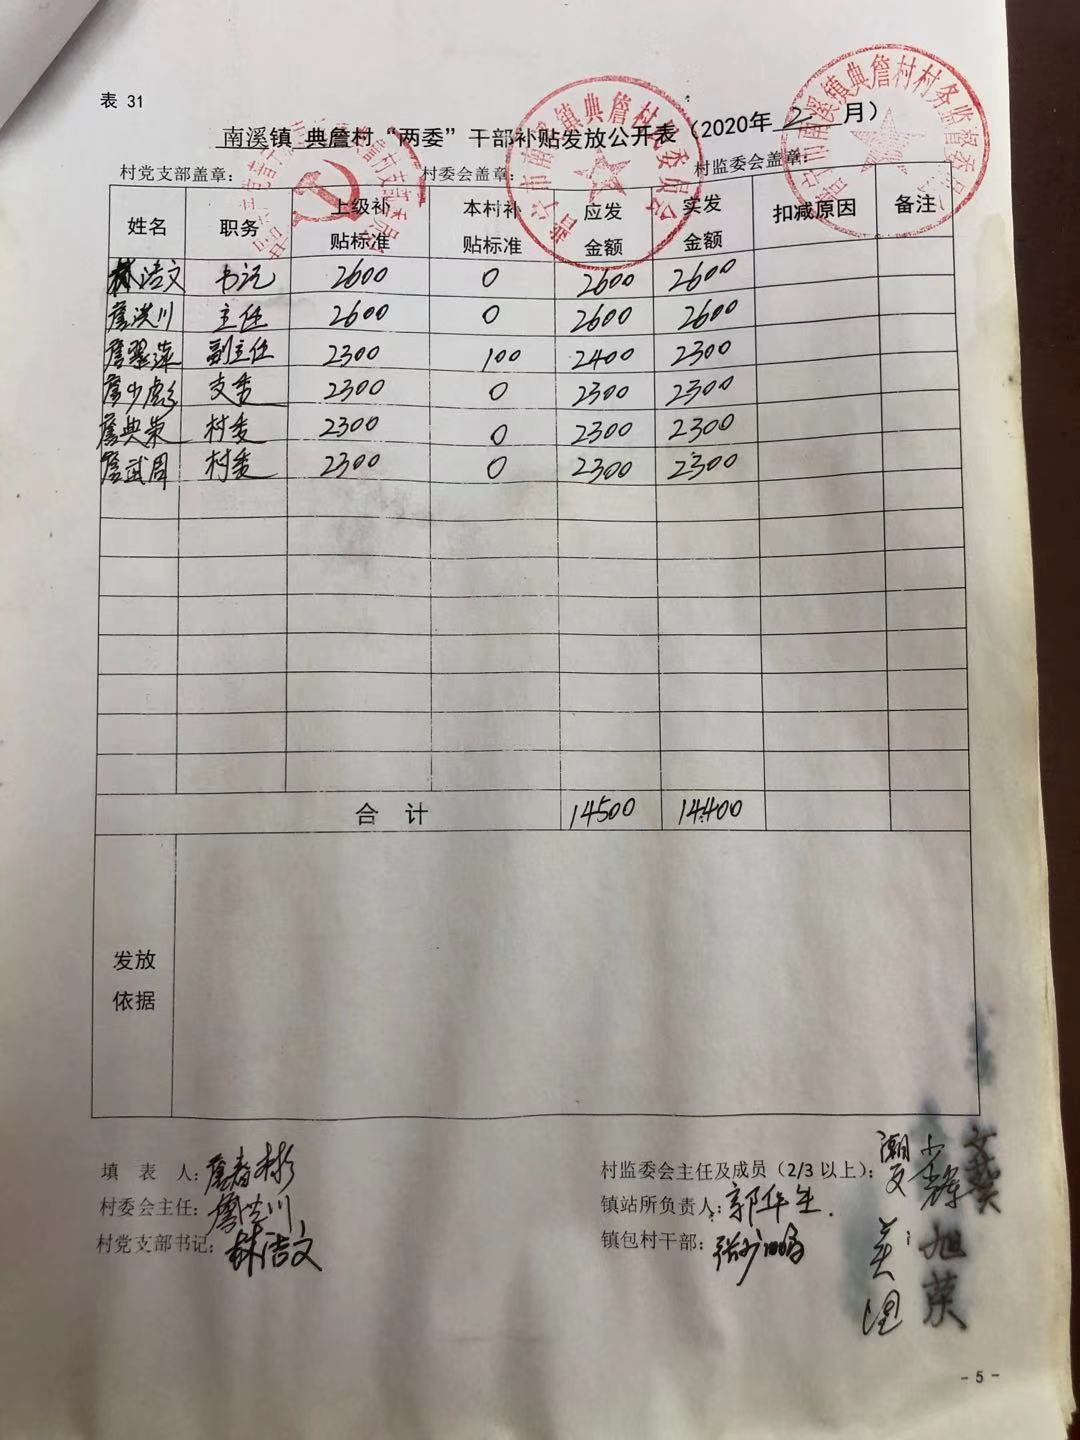 表 31
南溪镇 典詹村“两委”干部补贴发放公开表（2020年 2 月）
村党支部盖章： 村委会盖章： 村监委会盖章：
姓名 职务 上级补贴标准 本村补贴标准 应发金额 实发金额 扣减原因 备注
林洁文 书记 2600 0 2600 2600
詹洪川 主任 2600 0 2600 2600
詹翠萍 副主任 2300 100 2400 2300
詹少彪 支委 2300 0 2300 2300
詹典荣 村委 2300 0 2300 2300
詹武周 村委 2300 0 2300 2300
合 计 14500 14400
发放依据
填 表 人：詹春彬
村委会主任：詹洪川
村党支部书记：林洁文
村监委会主任及成员（2/3 以上）：
镇站所负责人：郭华生
镇包村干部：
- 5 -